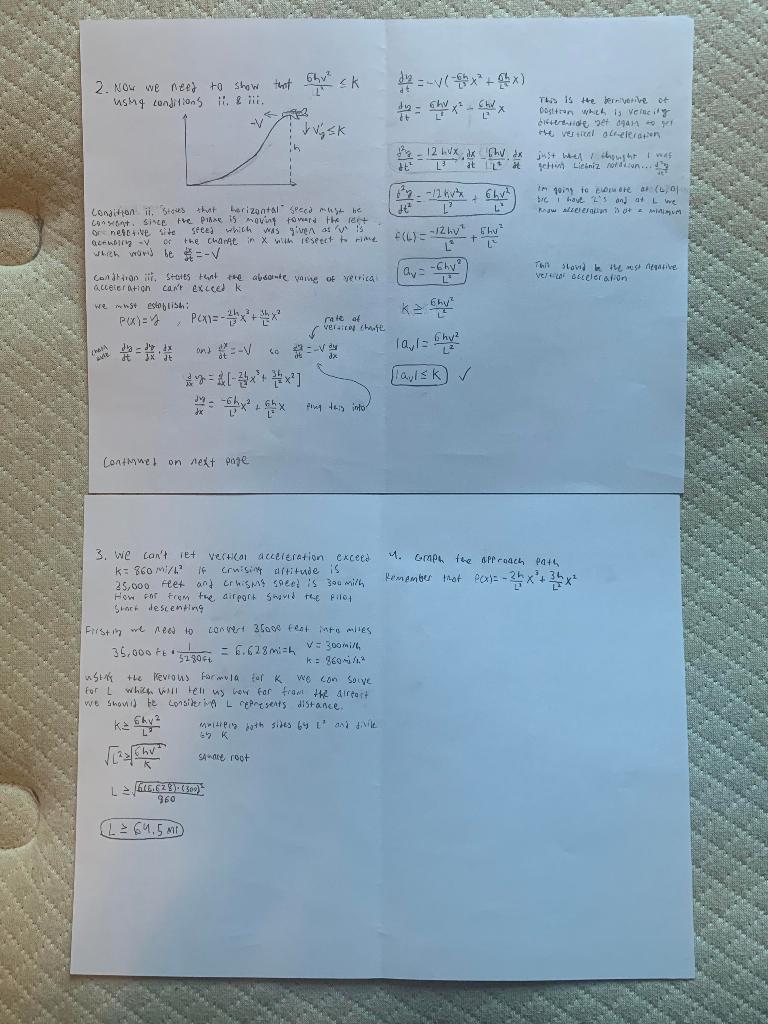 2. Now we need to show that 6hv²/L² ≤ K
using conditions ii. & iii.
-V
↓ V'y ≤ K
h
condition ii. states that horizontal speed must be
constant. since the plane is moving toward the left
or negative side speed which was given as "v" is
actually -v or the change in x with respect to time
which would be dx/dt = -V
condition iii. states that the absolute value of vertical
acceleration can't exceed K
we must establish:
P(x)=y , P(x)= -2h/L³ x³ + 3h/L² x²
rate of
vertical change
chain
rule
dy/dt = dy/dx · dx/dt and dx/dt = -V so dy/dt = -V dy/dx
d/dx y = d/dx [-2h/L³ x³ + 3h/L² x²]
dy/dx = -6h/L³ x² + 6h/L² x plug this into
Continued on next page
dy/dt = -V(-6h/L³ x² + 6h/L² x)
dy/dt = 6hv/L³ x² - 6hv/L² x
This is the derivative of
position which is velocity
differentiate yet again to get
the vertical acceleration
d²y/dt² = 12hvx/L³ · dx/dt - 6hv/L² · dx/dt
just when I thought I was
getting Liebniz notation... d²y/dt²
d²y/dt² = -12hv²x/L³ + 6hv²/L²
Im going to evaluate at
I have 2's and at L we
know acceleration is at a minimum
f(L) = -12hv²/L² + 6hv²/L²
av = -6hv²/L²
This should be the most negative
vertical acceleration
K ≥ 6hv²/L²
|av| = 6hv²/L²
|av| ≤ K ✓
3. We can't let vertical acceleration exceed
k = 860 mi/h² if cruising altitude is
35,000 feet and cruising speed is 300 mi/h
How far from the airport should the pilot
start descenting
Firstly we need to convert 35000 feet into miles
35,000 ft · 1/5280ft = 6.628 mi=h
V = 300mi/h
K = 860mi/h²
using the Previous formula for K we can solve
for L which will tell us how far from the airport
we should be considering L represents distance.
K ≥ 6hv²/L²
multiply both sides by L² and divide
by K
√L² ≥ √6hv²/K
square root
L ≥ √6(6.628)·(300)²/860
L ≥ 64.5 mi
4. Graph the approach path
Remember that P(x)= -2h/L³ x³ + 3h/L² x²